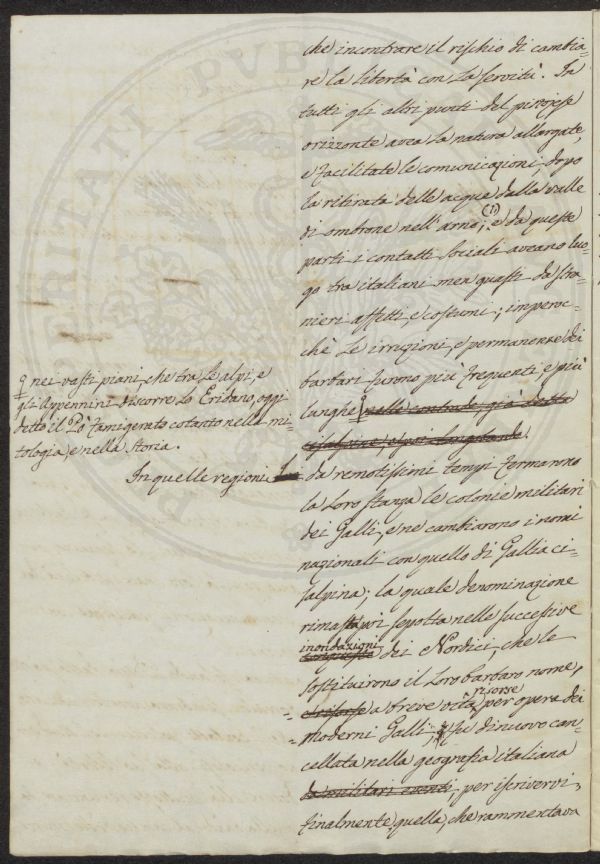 che incontrare il rischio di cambia=
re la libertà con la servitù. In
tutti gli altri punti del pistojese
orizzonte avea la natura allargate,
e facilitate le comunicazioni, dopo
la ritirata delle acque dalla valle
di ombrone nell'arno; (1) e da queste
parti i contatti sociali aveano luo-
go tra italiani men guasti da stra-
nieri affetti, e costumi; imperoc-
chè le irruzioni, e permanenze dei
barbari furono più frequenti, e più
lunghe nelle contrade già detta
cisalpina, e poi
nei vasti piani, che tra le alpi, e
gli Appennini discorre lo Eridano, oggi
detto il Pò famigerato cotanto nella mi-
tologia, e nella storia.
In quelle regioni
da remotissimi tempi fermanno
la loro stanza le colonie militari
dei Galli, e ne cambiarono i nomi
nazionali con quello di Gallia ci=
salpina; la quale denominazione
rimasta poi sepolta nelle successive
inondazioni
conquiste dei Nordici, che le
sostituirono il loro barbaro nome,
risorse
e risorse a breve vita per opera dei
moderni Galli, fu di nuovo can-
cellata nella geografia italiana
da militari eventi per iscrivervi
finalmente quella, che rammentava